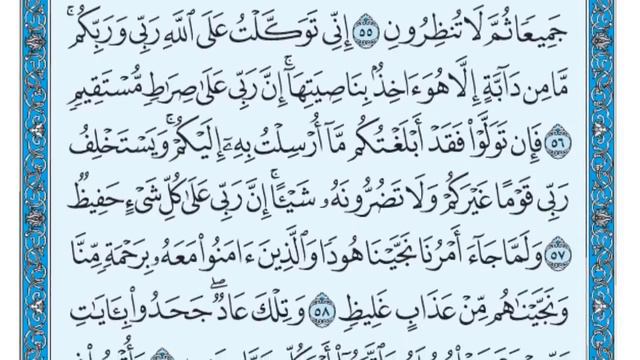 جَمِيعًا ثُمَّ لَا تُنظِرُونِ ٥٥ إِنِّى تَوَكَّلْتُ عَلَى ٱللَّهِ رَبِّى وَرَبِّكُمۚ
مَّا مِن دَآبَّةٍ إِلَّا هُوَ ءَاخِذٌۢ بِنَاصِيَتِهَآۚ إِنَّ رَبِّى عَلَىٰ صِرَٰطٍ مُّسْتَقِيمٍ
٥٦ فَإِن تَوَلَّوْا۟ فَقَدْ أَبْلَغْتُكُم مَّآ أُرْسِلْتُ بِهِۦٓ إِلَيْكُمْۚ وَيَسْتَخْلِفُ
رَبِّى قَوْمًا غَيْرَكُمْ وَلَا تَضُرُّونَهُۥ شَيْـًٔاۚ إِنَّ رَبِّى عَلَىٰ كُلِّ شَىْءٍ حَفِيظٌ
٥٧ وَلَمَّا جَآءَ أَمْرُنَا نَجَّيْنَا هُودًا وَٱلَّذِينَ ءَامَنُوا۟ مَعَهُۥ بِرَحْمَةٍ مِّنَّا
وَنَجَّيْنَٰهُم مِّنْ عَذَابٍ غَلِيظٍ ٥٨ وَتِلْكَ عَادٌۖ جَحَدُوا۟ بِـَٔايَٰتِ